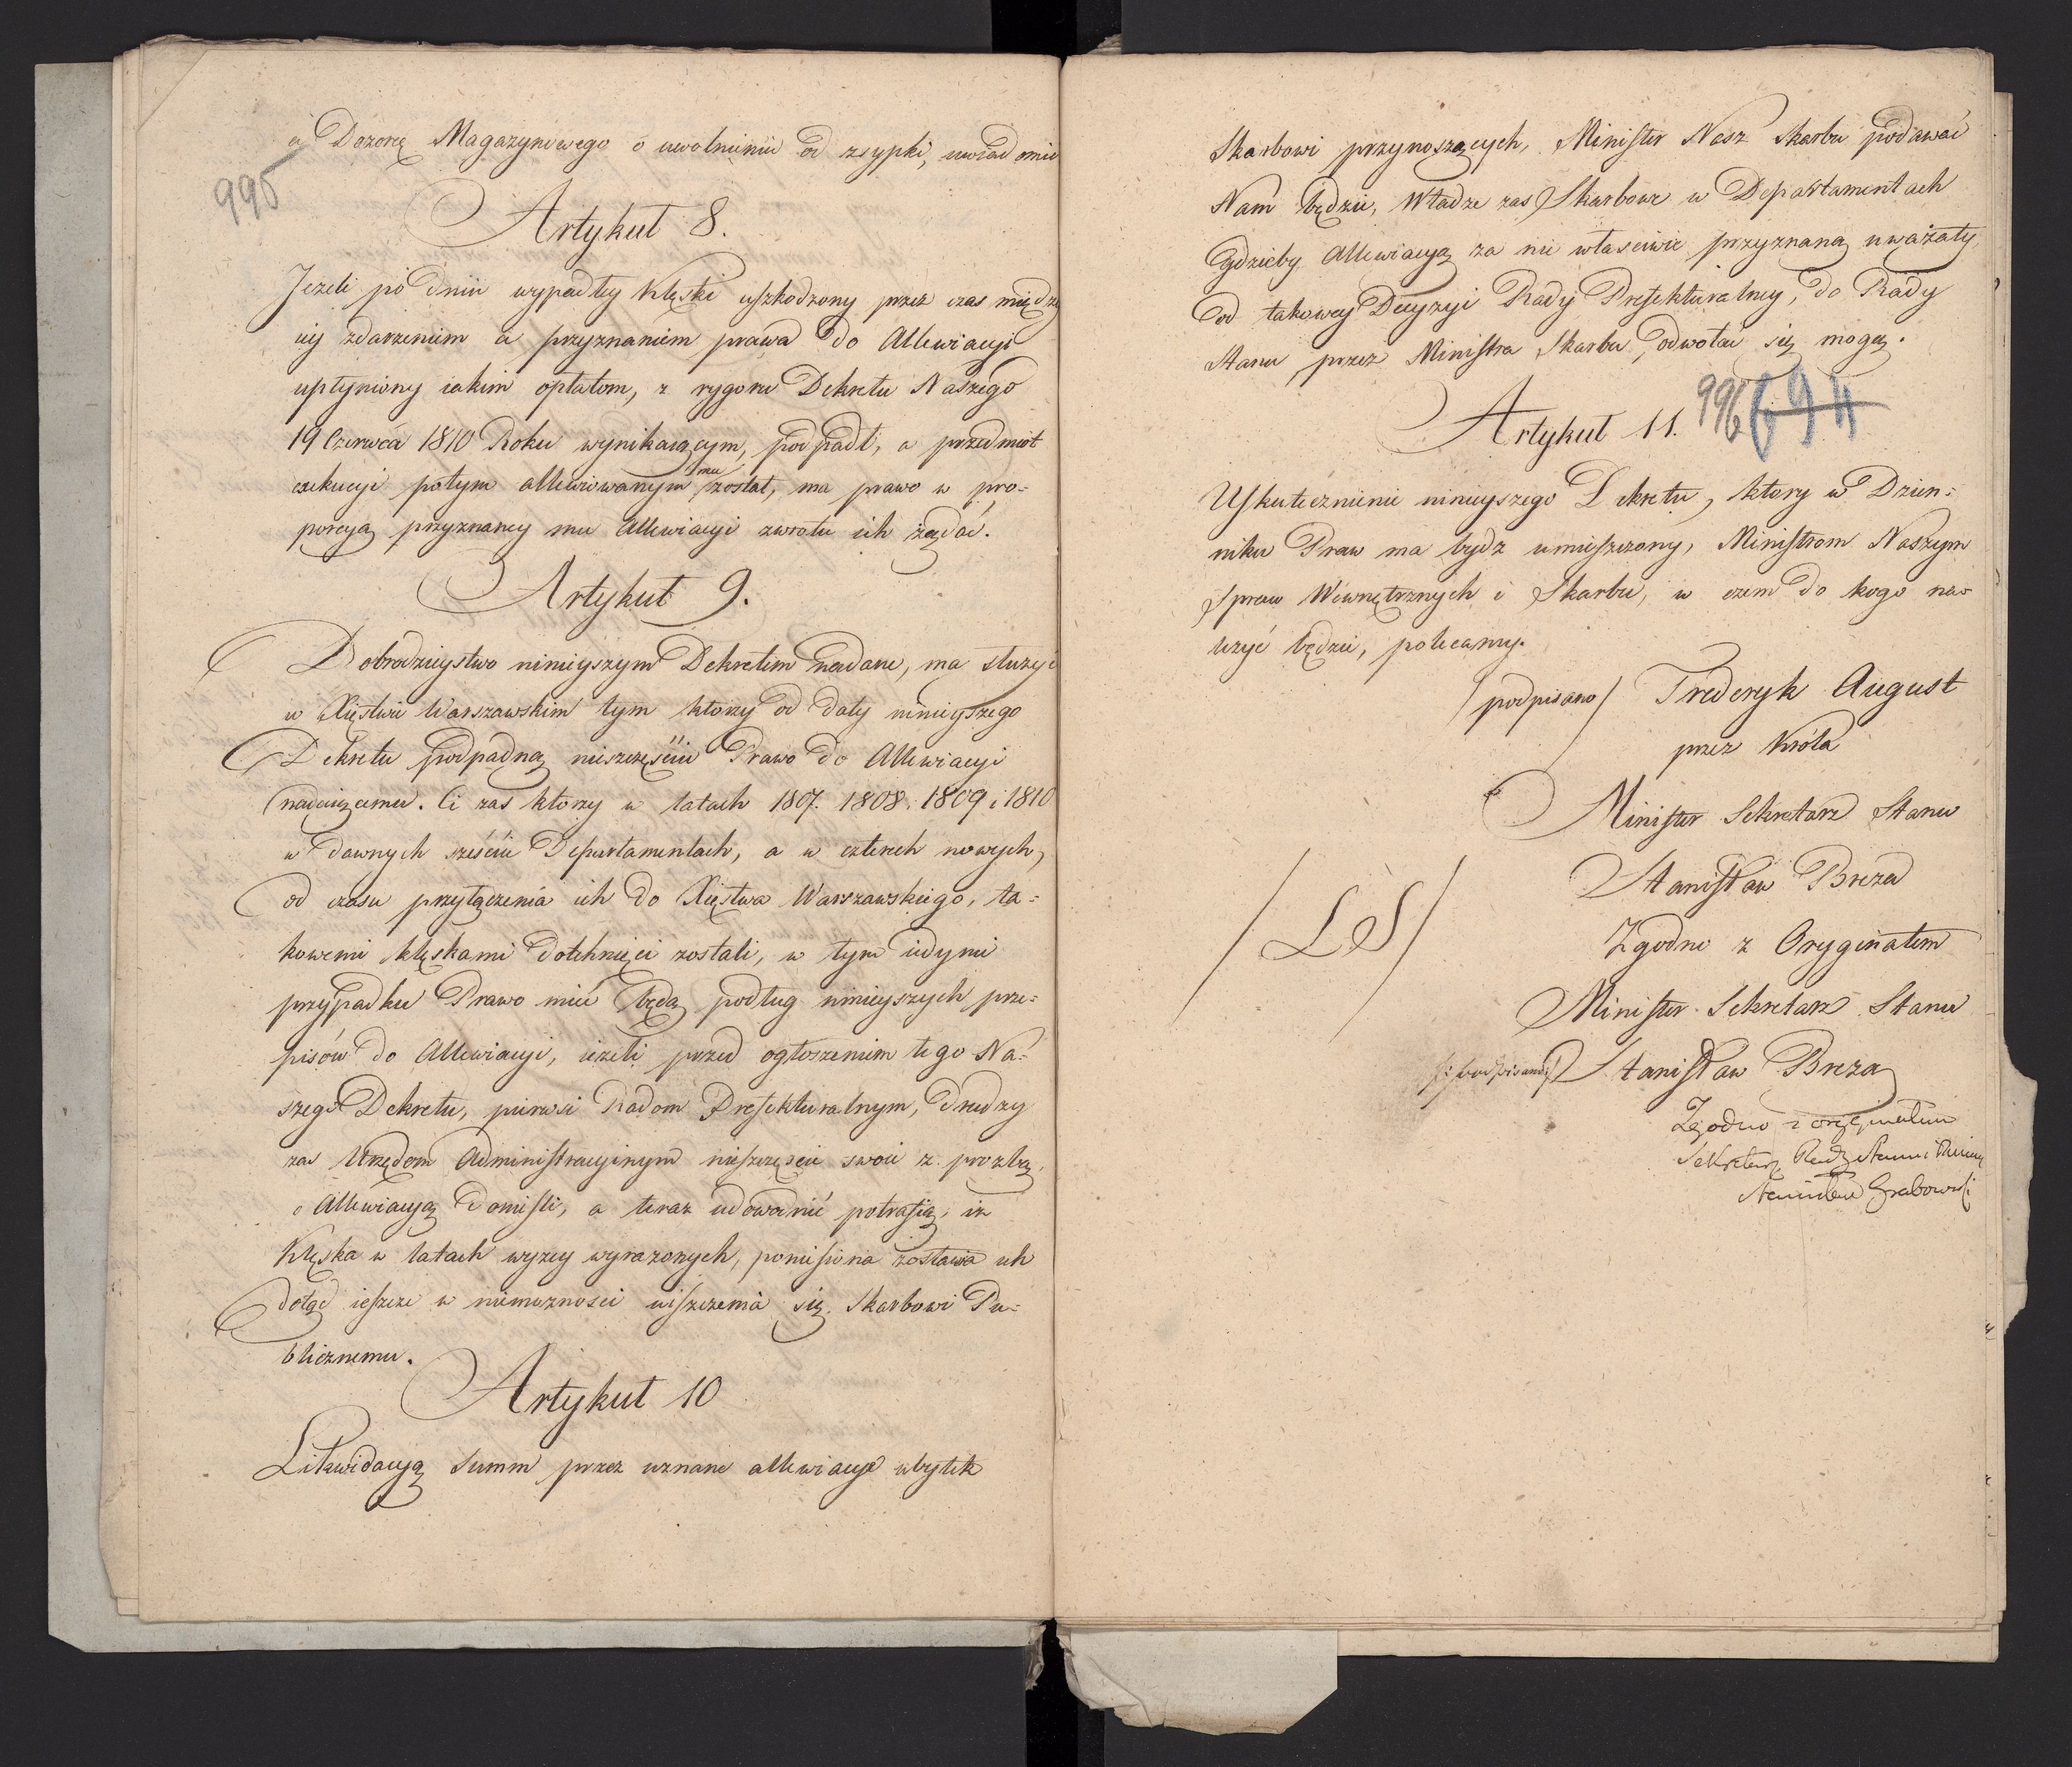 a Dozorcę Magazynowego o uwolnieniu od zsypki, uwiadomić
995
Artykuł 8.
Jezeli po dniu wypadłey klęski uszkodzony przez czas między
iey zdarzeniem a przyznaniem prawa do Allewiacyi
upłyniony iakim opłatom, z rygoru Dekretu Naszego
19 Czerwca 1810 Roku wynikaiącym, podpadł, a przedmiot
exekucyi potym allewiowanym mu został, ma prawo w pro=
porcyą przyznaney mu Allewiacyi zwrotu ich żądać.
Artykuł 9.
Dobrodzieystwo ninieyszym Dekretem nadane, ma służyć
w Xięstwie Warszawskim tym którzy od daty ninieyszego
Dekretu podpadną nieszczęściu Prawo do Allewiacyi
nadaiącemu. Ci zas którzy w latach 1807. 1808. 1809 i 1810
w dawnych sześciu Departamentach, a w czterech nowych,
od czasu przyłączenia ich do Xięstwa Warszawskiego, ta=
kowemi klęskami dotchnięci zostali, w tym iedynie
przypadku Prawo mieć będą podług ninieyszych prze=
pisów do Allewiacyi, ieżeli przed ogłoszeniem tego Na=
szego Dekretu, pierwsi Radom Prefekturalnym, drudzy
zas Urzędom Administracyinym nieszczęscie swoie z prozbą
o Allewiacyą doniesli, a teraz udowodnić potrafią, iz
klęska w latach wyzey wyrazonych, poniesiona zostawia ich
dotąd ieszcze w niemozności uiszczenia się Skarbowi Pu=
blicznemu.
Artykuł 10
Likwidacyą Summ przez uznane allewiacye ubytek
Skarbowi przynoszących, Minister Nasz Skarbu podawać
Nam będzie, Władze zas Skarbowe w Departamentach
gdzieby Allewiacyą za nie właściwie przyznaną uważały,
od takowey Decyzyi Rady Prefekturalney, do Rady
Stanu przez Ministra Skarbu, odwołać się mogą.
996 694
Artykuł 11.
Uskutecznienie ninieyszego Dekretu, który w Dzien=
niku Praw ma bydz umieszczony, Ministrom Naszym
Spraw Wewnętrznych i Skarbu, w czem do kogo na=
leżyć będzie, polecamy.
/podpisano/ Frederyk August
przez Króla
Minister Sekretarz Stanu
Stanisław Breza
/LS/
Zgodno z Oryginałem
Minister Sekretarz Stanu
/:podpisano:/ Stanisław Breza
Zgodno z oryginałem
Sekretarz Rady Stanu i Minis
Stanisław Grabowski